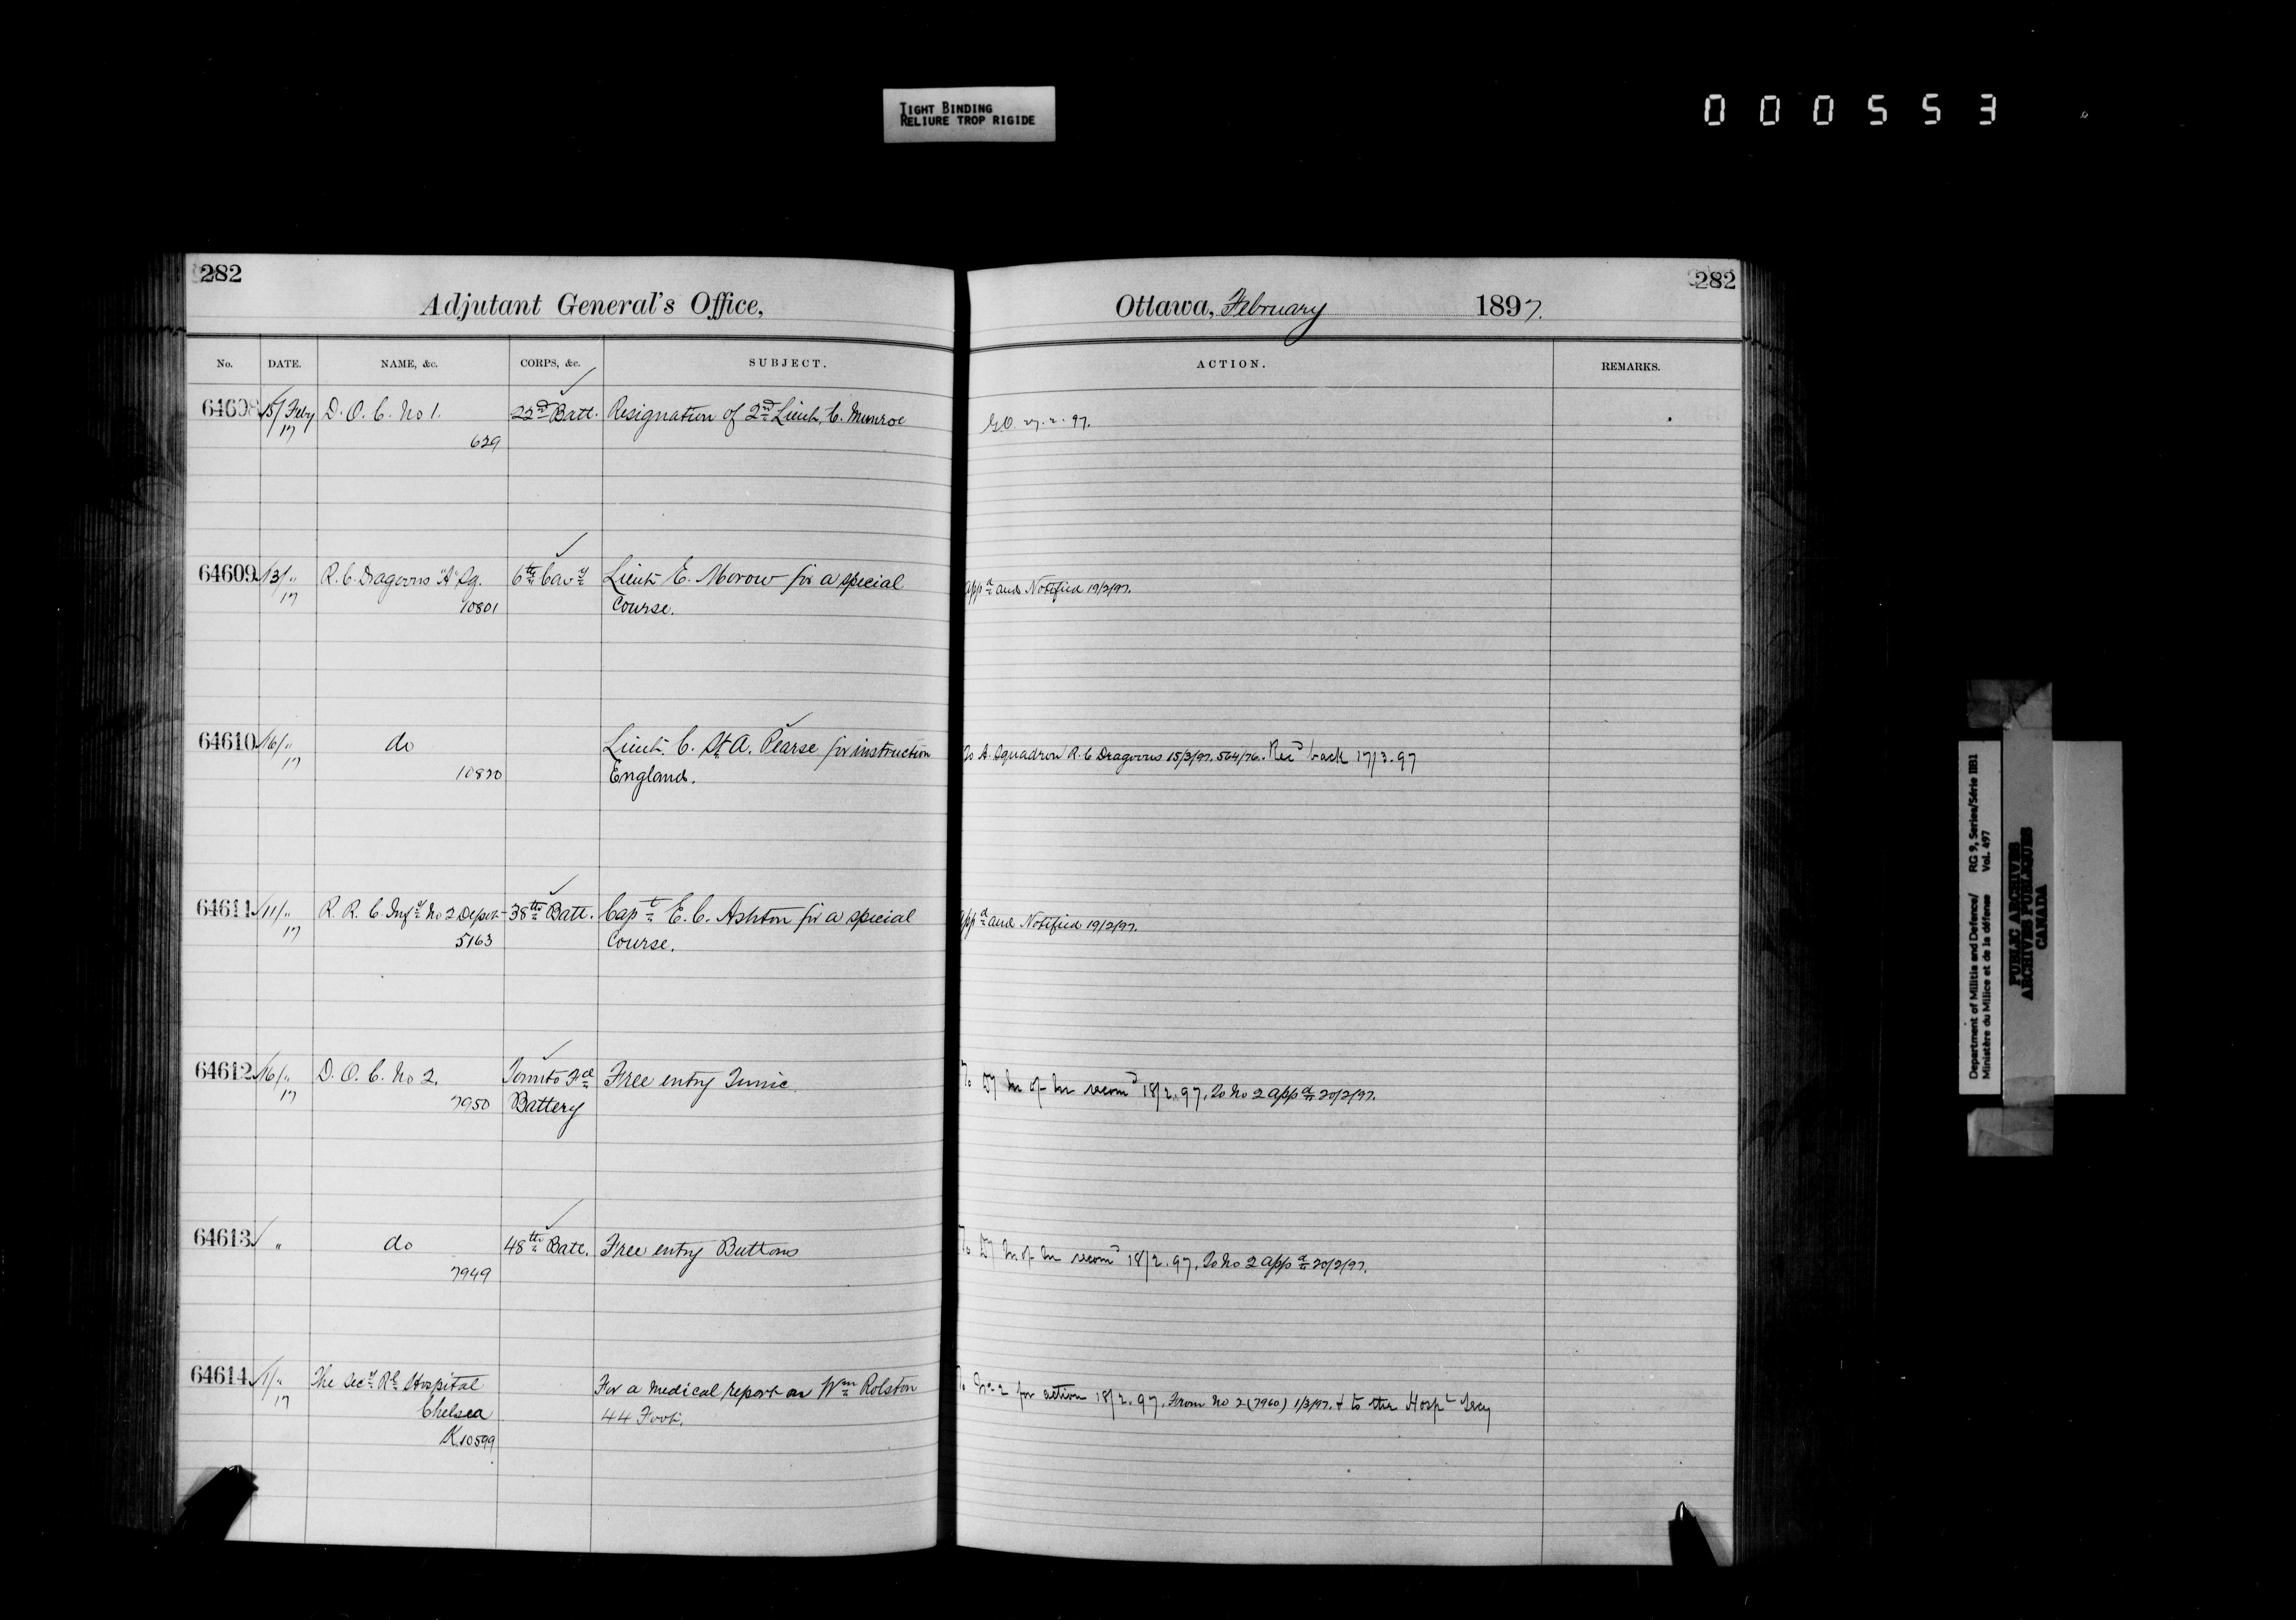 TIGHT BINDING
RELIURE TROP RIGIDE
000553
282
Adjutant General's Office,
No. DATE. NAME, &c. CORPS, &c. SUBJECT.
64608 15/Feby D. O. C. No 1. 22nd Batt. Resignation of 2nd Lieut. C. Munroe
17 629
64609 13/ " R. C. Dragoons "A" Sq. 6th Cavy Lieut. E. Morow for a special
17 10801 Course.
64610 16/ " do Lieut. C. St A. Pearse for instruction
17 10820 England.
64611 11/ " R. R. C. Infy No 2 Depot 38th Batt. Capt E. C. Ashton for a special
17 5163 Course.
64612 16/ " D. O. C. No 2. Toronto Fd Free entry Tunic
17 7950 Battery
64613 " do 48th Batt. Free entry Buttons
7949
64614 1/ " The Secy Rl Hospital For a medical report on Wm Rolston
17 Chelsea 44 Foot.
K10599
282
Ottawa, February 1897.
ACTION. REMARKS.
G.O. 27.2.97.
Appd and Notified 19/2/97.
To A. Squadron R. C Dragoons 15/3/97. 564/76. Recd back 17/3.97
Appd and Notified 19/2/97.
To Dy M of M recomd 18/2.97. To No 2 appd 20/2/97.
To Dy M of M recomd 18/2.97. To No 2 appd 20/2/97.
To No 2 for action 18/2.97. From No 2 (7960) 1/3/97. & to the Hospl Secy
Department of Militia and Defence/ RG 9, Series/Série IIB1
Ministère du Milice et de la défense Vol. 497
PUBLIC ARCHIVES
ARCHIVES PUBLIQUES
CANADA